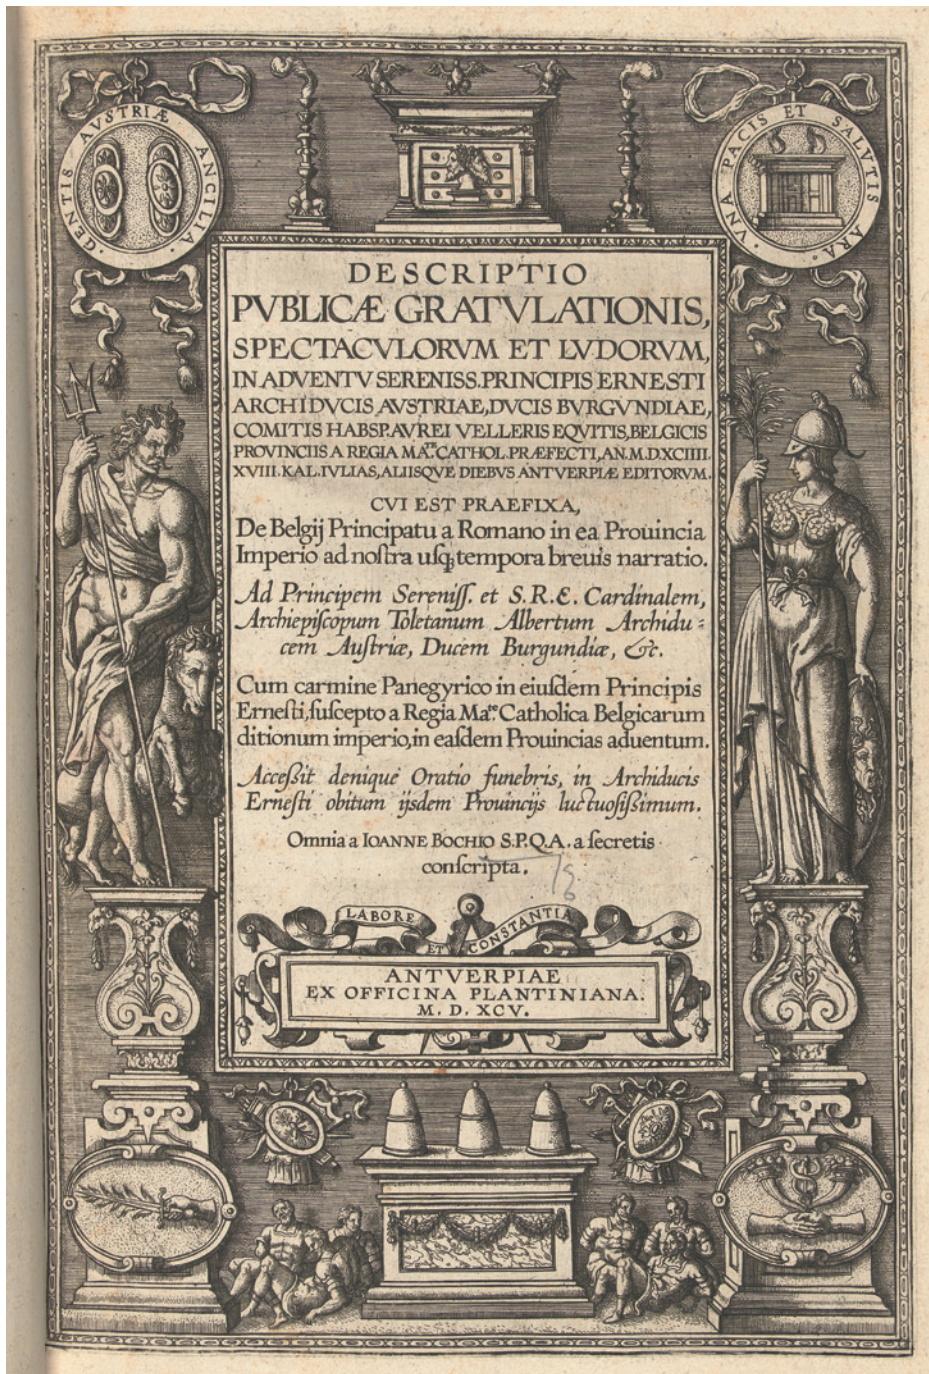 GENTIS AVSTRIÆ ANCILIA.
VNA PACIS ET SALVTIS ARA.
DESCRIPTIO
PVBLICÆ GRATVLATIONIS,
SPECTACVLORVM ET LVDORVM,
IN ADVENTV SERENISS. PRINCIPIS ERNESTI
ARCHIDVCIS AVSTRIAE, DVCIS BVRGVNDIAE,
COMITIS HABSP. AVREI VELLERIS EQVITIS, BELGICIS
PROVINCIIS A REGIA MA.TE CATHOL. PRÆFECTI, AN. M.D.XCIIII.
XVIII. KAL. IVLIAS, ALIISQVE DIEBVS ANTVERPIÆ EDITORVM.
CVI EST PRAEFIXA,
De Belgij Principatu a Romano in ea Prouincia
Imperio ad noſtra uſq; tempora breuis narratio.
Ad Principem Sereniſſ. et S.R.E. Cardinalem,
Archiepiſcopum Toletanum Albertum Archidu=
cem Auſtriæ, Ducem Burgundiæ, &c.
Cum carmine Panegyrico in eiuſdem Principis
Erneſti, ſuſcepto a Regia Ma.te Catholica Belgicarum
ditionum imperio, in eaſdem Prouincias aduentum.
Acceßit denique Oratio funebris, in Archiducis
Erneſti obitum ijsdem Prouincijs luctuoſißimum.
Omnia a IOANNE BOCHIO S.P.Q.A. a ſecretis
conſcripta.
LABORE ET CONSTANTIA
ANTVERPIAE
EX OFFICINA PLANTINIANA.
M. D. XCV.